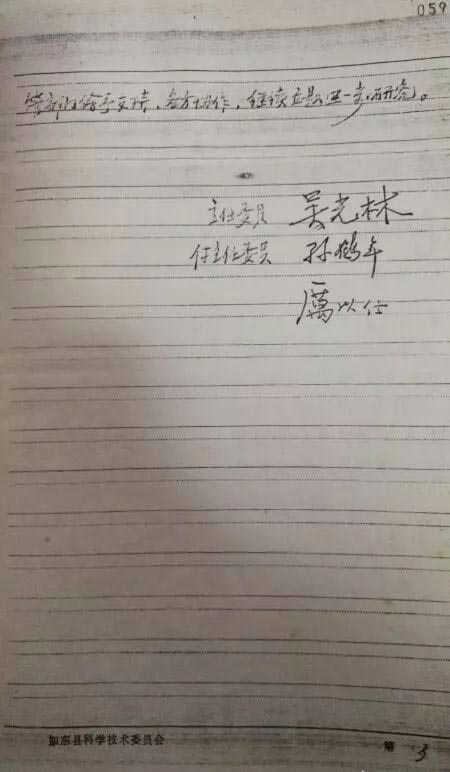 059
给予支持，各方协作，继续立题进一步研究。
主任委员 吴光林
付主任委员 孙鹤年
厲以仕
如东县科学技术委员会
第 3